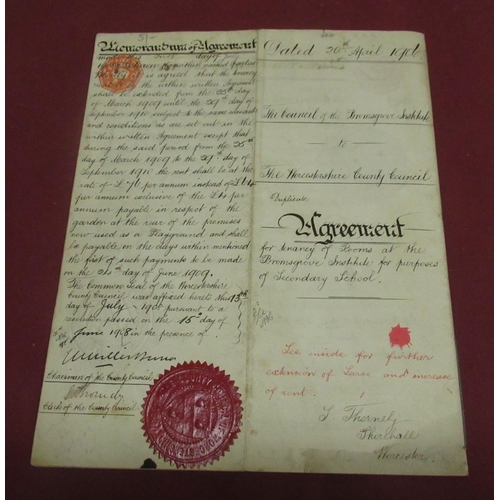 Memorandum of Agreement
is agreed that the tenancy
of March 1909 until the 29th day of
September 1910 subject to the same
and conditions as are set out in the
within written Agreement except that
during the said period from the 25th
day of March 1909 to the 29th day of
September 1910 the rent shall be at the
rate of per annum instead of
per annum exclusive of the
annum payable in respect of the
garden at the rear of the premises
now used as a Playground and shall
be payable on the days within mentioned
the first of such payments to be made
on the day of June 1909.
The Common Seal of the Worcestershire
County Council was affixed hereto this 13th
day of July pursuant to a
resolution passed on the 15th day of
June 1908 in the presence of
Chairman of the County Council.
Clerk of the County Council.
Dated 20th April 1906
The Council of the Bromsgrove Institute
to
The Worcestershire County Council
Duplicate
Agreement
for tenancy of Rooms at the
Bromsgrove Institute for purposes
of Secondary School.
See inside for further
extension of Lease and increase
of rent.
Shirehall
Worcester